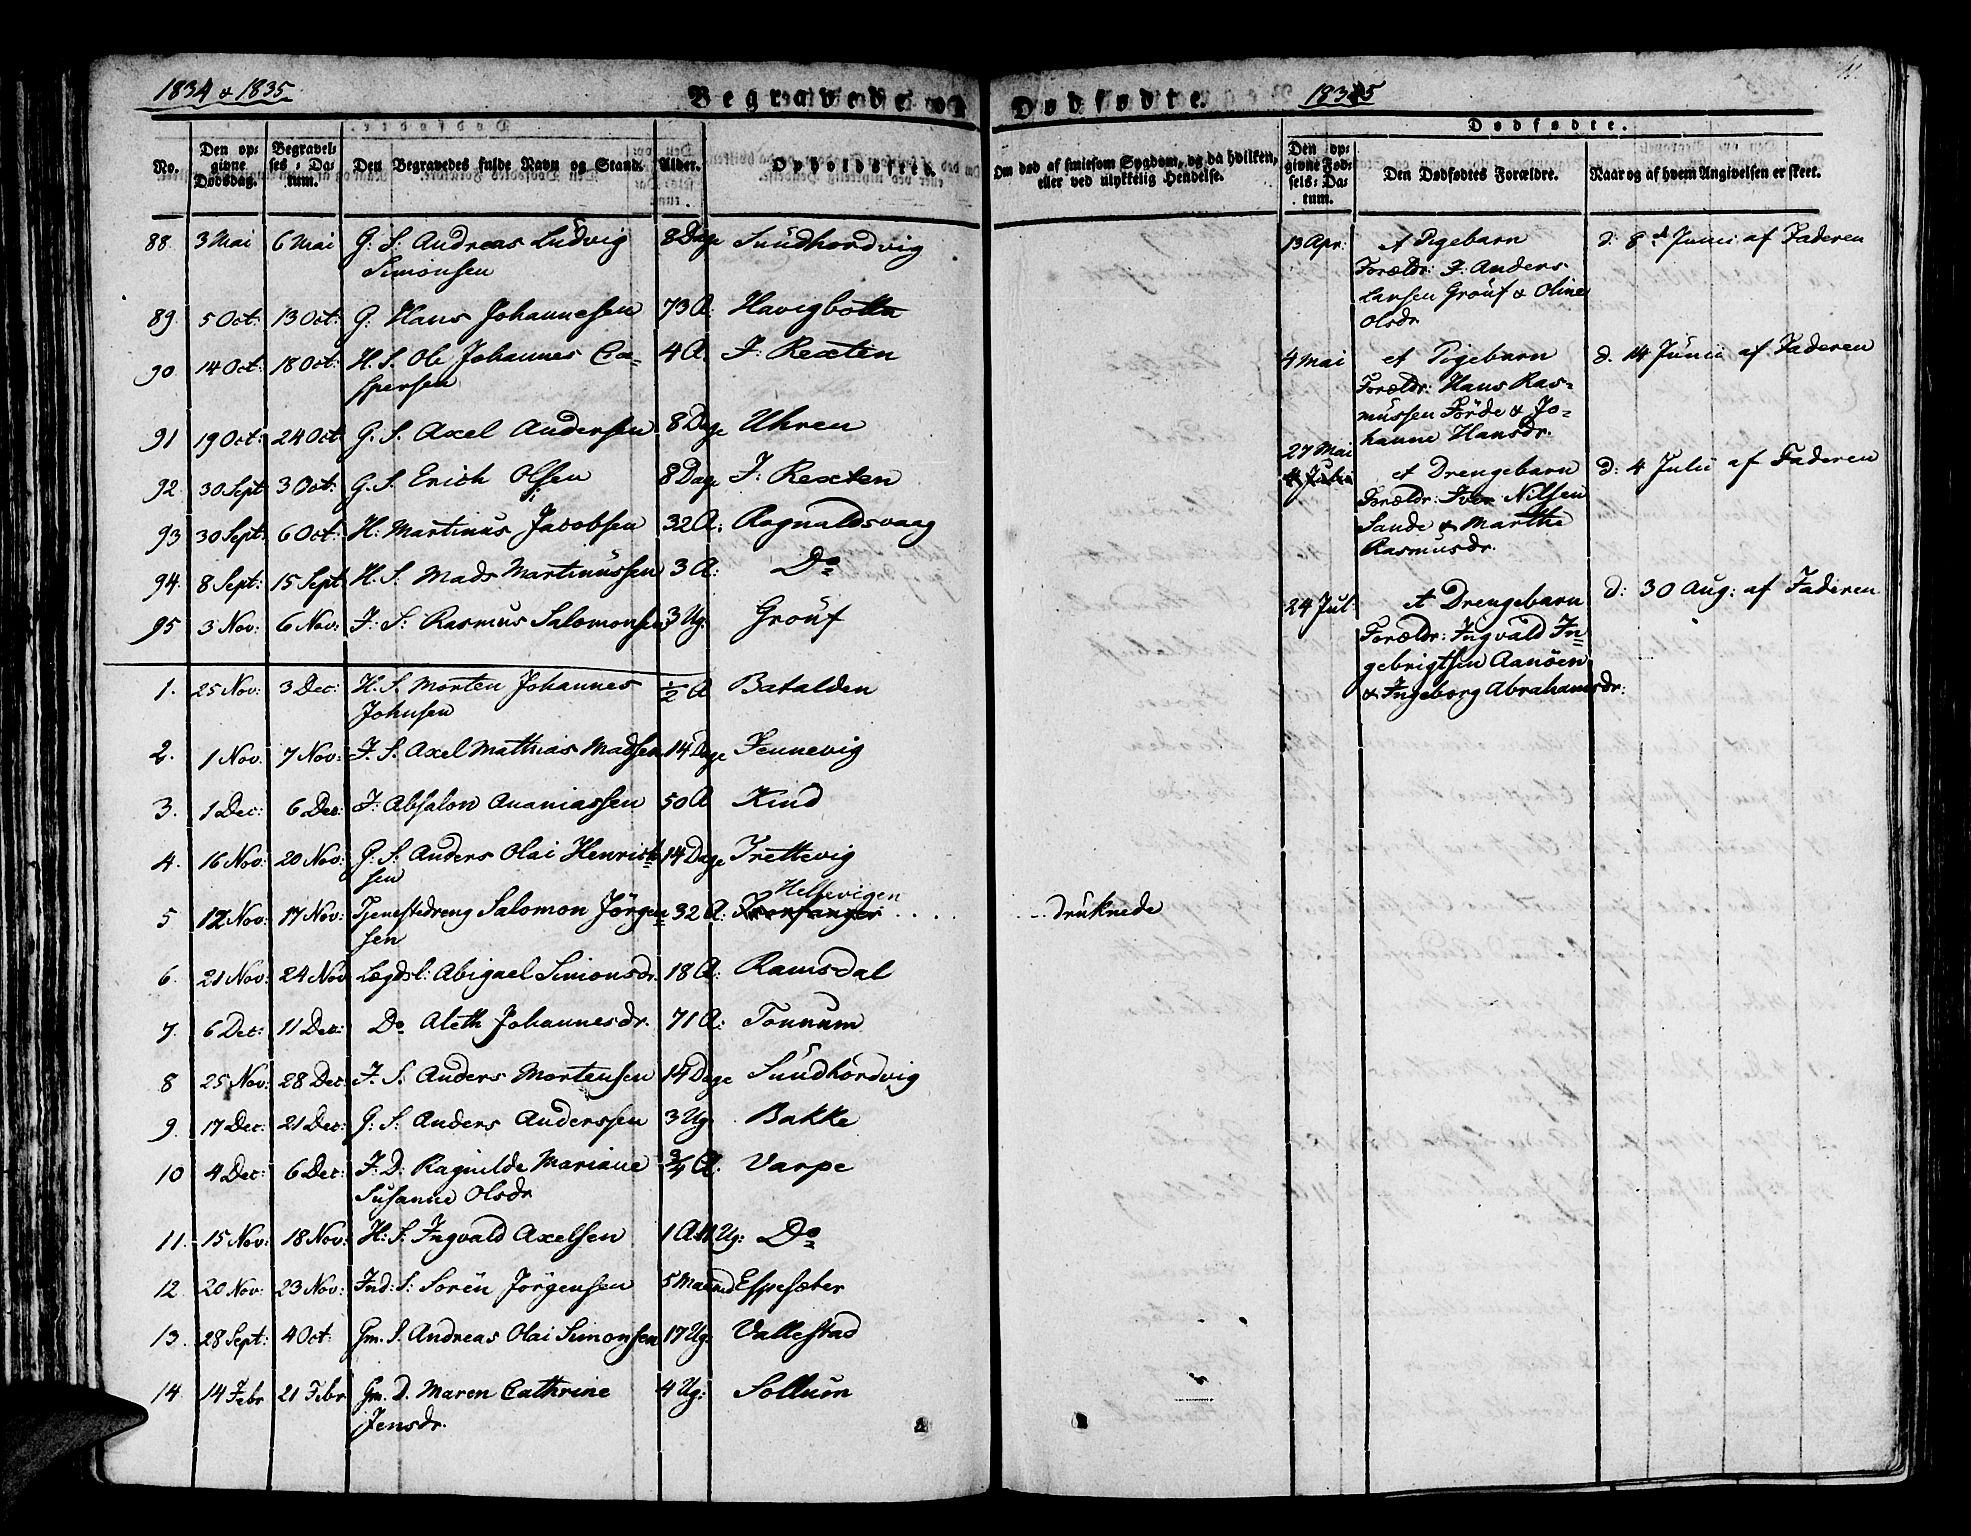 1834 & 1835.
Begravede og
No.
Den op-
givne
Dødsdag.
Begravel-
ses-Da-
tum.
Den Begravedes fulde Navn og Stand.
Alder.
Opholdssted.
88. 3 Mai 6 Mai G: S: Andreas Ludvig 8 Dage Sundhordvig
Simonsen
89. 5 Oct: 13 Oct: G: Hans Johannesen 73 A: Havigbotten
90. 14 Oct: 18 Oct: H. S. Ole Johannes Ca- 4 A. J: Rexten
spersen
91 19 Oct: 24 Oct G. S. Axel Andersen 8 Dage Uhren
92. 30 Sept 3 Oct: G. S. Erich Olsen 8 Dage J: Rexten
93 30 Sept: 6 Oct: H: Martinus Jacobsen 32 A: Aagnaldsvaag
94. 8 Sept: 15 Sept H. S. Mads Martinussen 3 A: Do
95 3 Nov: 6 Nov: J: S: Rasmus Salomonsen 3 Ug. Grouf
1. 25 Nov: 3 Dec: H. S. Morten Johannes ½ A Batalden
Johnsen
2. 1 Nov. 7 Nov: J. S. Axel Mathias Madsen 14 Dage Fennevig
3. 1 Dec: 6 Dec: J: Absalon Ananiassen 50 A Kind
4. 16 Nov: 20 Nov: G. S. Anders Olai Henrich- 14 Dage Trettevig
sen
Hellevigen
5 12 Nov: 17 Nov: Tjenestedreng Salomon Jörgen- 32 A: . . . . . . druknede
sen
6. 21 Nov: 24 Nov Lægdsl: Abigael Simonsdr. 18 A: Ramsdal
7. 6 Dec: 11 Dec: Do Aleth Johannesdr. 71 A: Tonnum
8 25 Nov: 28 Dec: J. S. Anders Mortensen 14 Dage Sundhordvig
9. 17 Dec: 21 Dec: G. S. Anders Anderssen 3 Ug. Bakke
10 4 Dec: 6 Dec: J. D: Ragnilde Mariane ¾ A. Varpe
Susanne Olsdr.
11. 15 Nov: 18 Nov: H: S. Ingvald Axelsen 1 A 11 Ug: Do
12. 20 Nov: 23 Nov: Ind: S: Sorén Jörgensen 5 Maaned Espesæter
13. 28 Sept: 4 Oct: Gm. S. Andreas Olai Simonsen 17 Ug. Vallestad
14. 14 Febr 21 Febr Gm. D. Maren Cathrine 4 Ug: Sollum
Jensdr.
Dødfødte.
1835
11.
Om død af smitsom Sygdom, og da hvilken,
eller ved ulykkelig Hendelse.
Dødfødte.
Den op-
givne Fød-
sels-Da-
tum.
Den Dødfødtes Forældre.
Naar og af hvem Angivelsen er skeet.
13 Apr: et Pigebarn d: 8d Junii af Faderen
Forældr: J: Anders
Larsen Grouf & Oline
Olsdr
4 Mai et Pigebarn d. 14 Junii af Faderen
Forældr: Hans Ras-
mussen Förde & Jo-
hanne Hansdr.
27 Mai
et Drengebarn d: 4 Julii af Faderen
Forældr: Iver Nilsen
Sande & Marthe
Rasmusdr.
24 Jul: et Drengebarn d: 30 Aug: af Faderen
Forældr: Ingvald In-
gebrigtsen Aanöen
& Ingeborg Abrahamsdr: